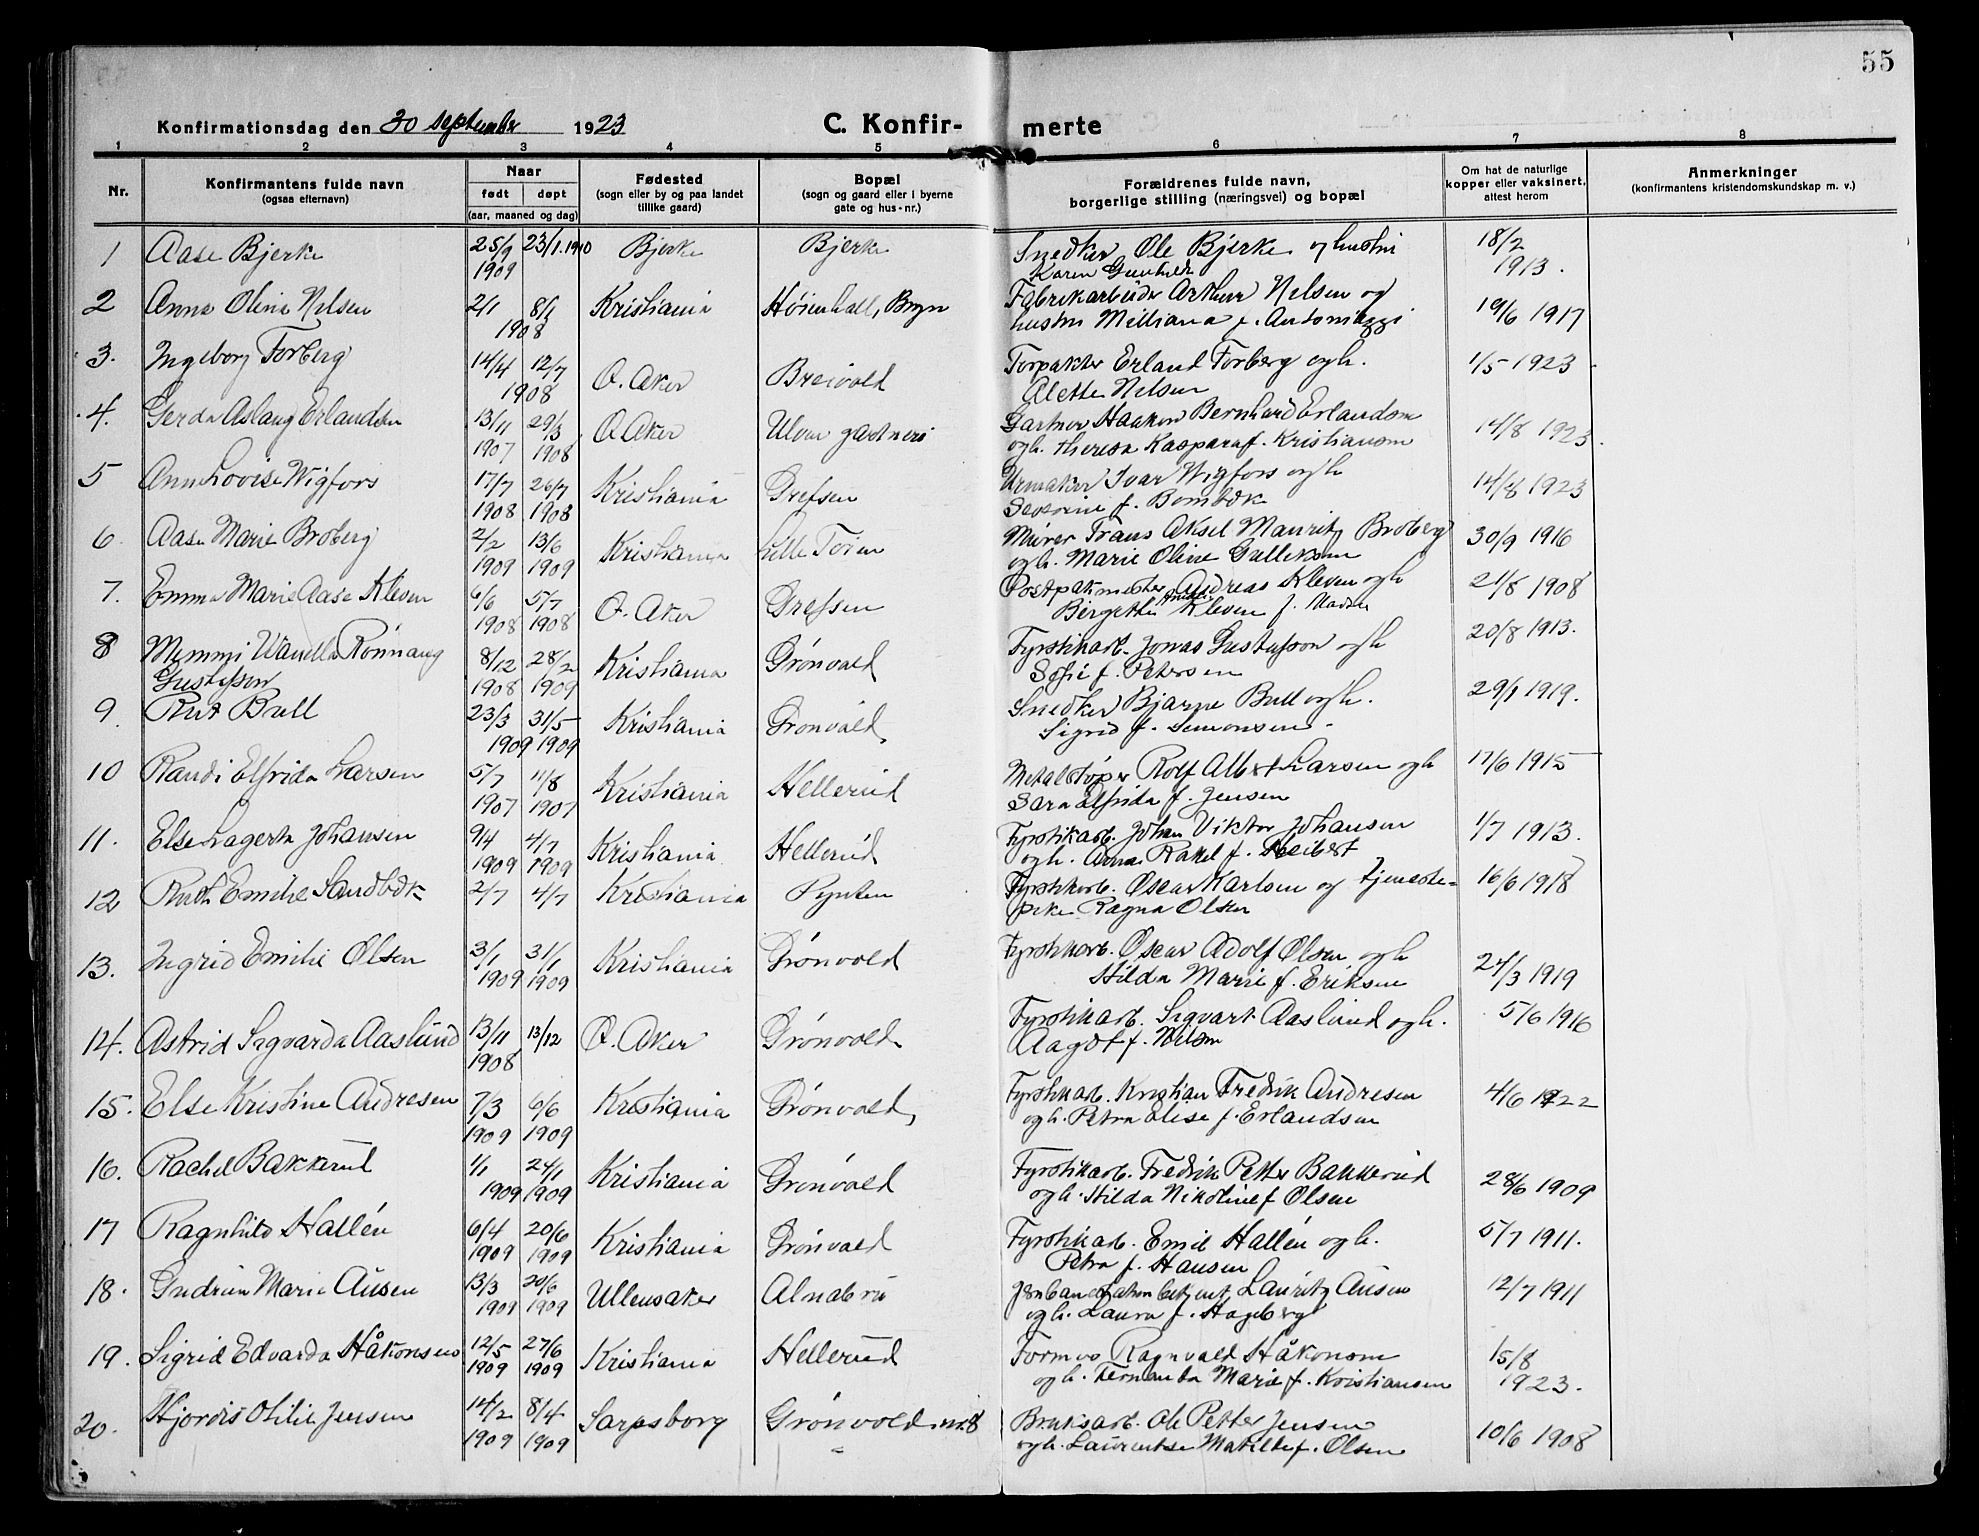 55
Konfirmationsdag den 30 september 1923 C. Konfir- merte
1 2 3 4 5 6 7 8
Nr. Konfirmantens fulde navn (ogsaa efternavn) Naar født døpt (aar, maaned og dag) Fødested (sogn eller by og paa landet tillike gaard) Bopæl (sogn og gaard eller i byerne gate og hus-nr.) Forældrenes fulde navn, borgerlige stilling (næringsvei) og bopæl Om hat de naturlige kopper eller vaksinert, attest herom Anmerkninger (konfirmantens kristendomskundskap m. v.)
1 Aase Bjerke 25/9 23/1.1910 Bjerke Bjerke Snedker Ole Bjerke og hustru 18/2
1909 Karen Gunhild 1913.
2 Anna Olina Nilsen 2/1 8/1 Kristiania Høienhall, Bryn Fabrikarbeider Arthur Nilsen og 19/6 1917
1908 hustru Milliana f. Antoniazzi
3. Ingeborg Forberg 14/4 12/7 Ø. Aker Breivold Forpakter Erland Forberg og h. 1/5 1923
1908 Alette Nilsen
4. Gerda Aslaug Erlandsen 13/11 29/3 Ø. Aker Ulven gartneri Gartner Haakon Bernhard Erlandsen 14/8 1923.
1907 1908 og h. Theresa Kaspara f. Kristiansen
5 Ann Lovise Wigfors 17/7 26/7 Kristiania Grefsen Urmaker Ivar Wigfors og h 14/8 1923
1908 1908 Severine f. Bombæk
6 Aase Marie Broberg 2/2 13/6 Kristiania Lille Tøien Murer Frans Aksel Mauritz Broberg 30/9 1916
1909 1909 og h. Marie Oline Gulliksen
7. Emma Marie Aase Kleven 6/6 5/7 Ø. Aker Grefsen Postpakmester Andreas Kleven og h 21/8 1908
1908 1908 Birgette Kleven f.
8 Mimmi Wanella Rönnaug 8/12 28/2 Kristiania Grønvold Fyrstikarb. Jonas Gustafsson og h 20/8 1913.
Gustafsson 1908 1909 Sofie f. Petersen
9. Rut Bull 23/3 31/5 Kristiania Grønvold Snedker Bjarne Bull og h. 29/1 1919.
1909 1909 Sigrid f. Simonsen
10 Randi Elfrida Larsen 5/7 11/8 Kristiania Hellerud Metalstøper Rolf Albert Larsen og h 17/6 1915
1907 1907 Sara Elfrida f. Jensen
11. Else Lagerta Johansen 9/4 4/7 Kristiania Hellerud Fyrstikarb. Johan Viktor Johansen 1/7 1913.
1909 1909 og h. Anna Rakel f. Seibert
12 Ruth Emilie Sandbæk 2/7 4/7 Kristiania Pynten Fyrstikarb. Oscar Karlsen og tjeneste- 16/6 1918
pike Ragna Olsen
13. Ingrid Emilie Olsen 3/1 31/1 Kristiania Grønvold Fyrstikarb. Oscar Adolf Olsen og h 24/3 1919
1909 1909 Hilda Marie f. Eriksen
14. Astrid Sigvarda Aaslund 13/11 13/12 Ø. Aker Grønvold Fyrstikarb. Sigvart Aaslund og h. 5/6 1916
1908 Aagot f. Nilsen
15. Else Kristine Andresen 7/3 6/6 Kristiania Grønvold, Fyrstikarb. Kristian Fredrik Andresen 4/6 1922
1909 1909 og h. Petra Elise f. Erlandsen
16. Rachel Bakkerud 1/1 24/1 Kristiania Grønvold Fyrstikarb. Fredrik Petter Bakkerud 28/6 1909
1909 1909 og h. Hilda Nikoline f Olsen
17 Ragnhild Hallén 6/4 20/6 Kristiania Grønvold Fyrstikarb. Emil Hallén og h. 5/7 1911.
1909 1909 Petra f. Hansen
18. Gudrun Marie Ausen 13/3 20/6 Ullensaker Alnabru Jernbanestation betjent Lauritz Ausen 12/7 1911
1909 1909 og h. Laura f. Hagberg
19. Sigrid Edvarda Håkonsen 12/5 27/6 Kristiania Hellerud Former Ragnvald Håkonsen 15/8
1909 1909 og h. Fernanda Marie f. Kristiansen 1923.
20. Hjørdis Otilie Jensen 14/2 8/4 Sarpsborg Grønvold nr. 8 Bruksarb. Ole Petter Jensen 10/6 1908
1909 1909 og h. Laurentse Matilde f. Olsen